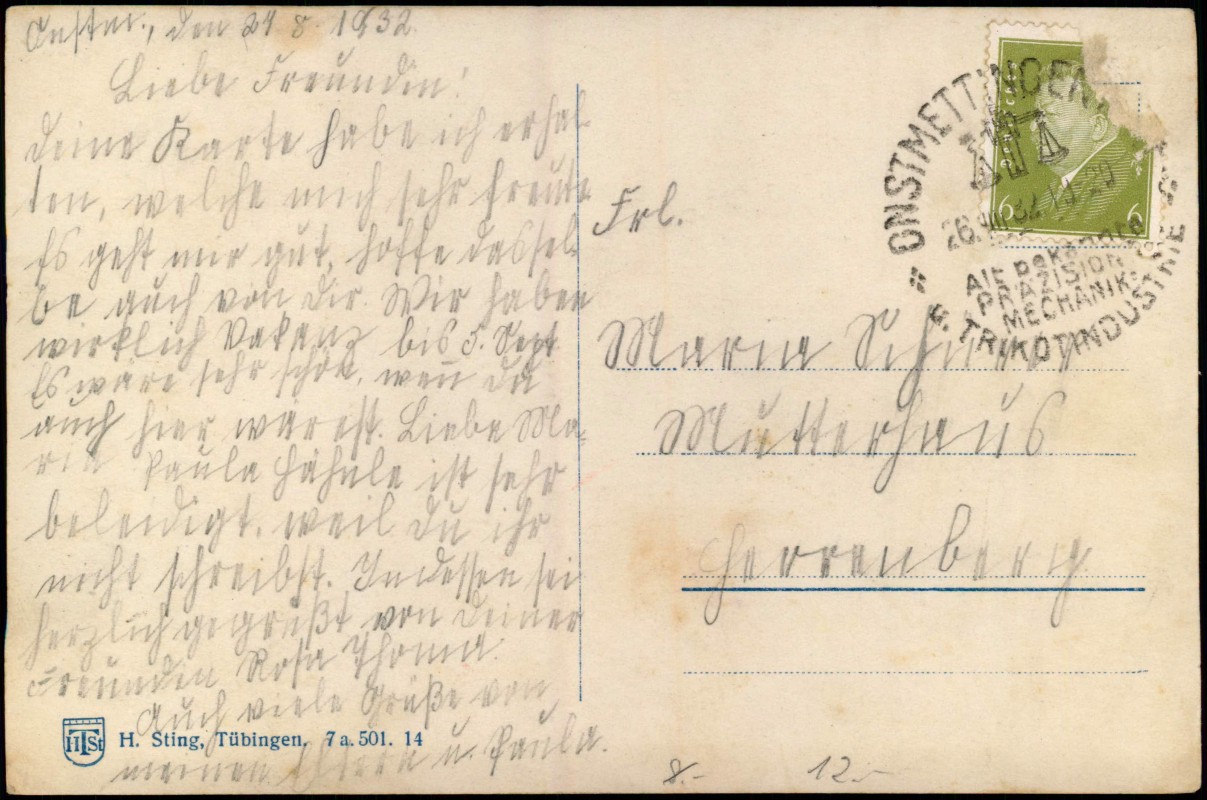 den 21 8. 1932.
Liebe Freundin!
Deine Karte habe ich erhal-
ten, welche mich sehr freute
Es geht mir gut, hoffe dassel-
be auch von dir. Wir haben
wirklich Vakanz bis 5. Sept
Es wäre sehr schön, wen̄ du
auch hier wärest. Liebe Ma-
ria Paula Hähnle ist sehr
beleidigt, weil du ihr
nicht schreibst. Indessen sei
herzlich gegrüßt von deiner
Freundin Rosa Thoma.
Auch viele Grüße von
meinen Eltern u. Paula.
H. Sting, Tübingen. 7a. 501. 14
HTSt
ONSTMETTINGEN
26. 32 20
Alt bekannte
PRÄZISIONS
MECHANIK
u. TRIKOTINDUSTRIE
6 6
Frl.
Maria
Mutterhaus
Herrenberg
8.- 12.-